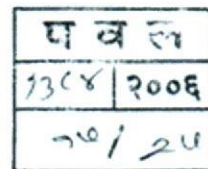 प व ल
१३८४ २००६
२५ / २५